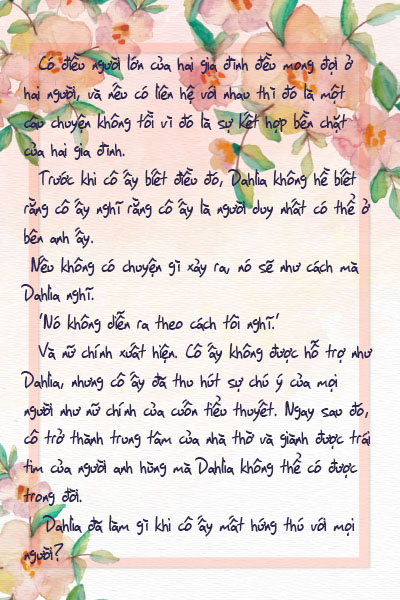 Có điều người lớn của hai gia đình đều mong đợi ở
hai người, và nếu có liên hệ với nhau thì đó là một
câu chuyện không tồi vì đó là sự kết hợp bền chặt
của hai gia đình.
Trước khi cô ấy biết điều đó, Dahlia không hề biết
rằng cô ấy nghĩ rằng cô ấy là người duy nhất có thể ở
bên anh ấy.
Nếu không có chuyện gì xảy ra, nó sẽ như cách mà
Dahlia nghĩ.
'Nó không diễn ra theo cách tôi nghĩ.'
Và nữ chính xuất hiện. Cô ấy không được hỗ trợ như
Dahlia, nhưng cô ấy đã thu hút sự chú ý của mọi
người như nữ chính của cuốn tiểu thuyết. Ngay sau đó,
cô trở thành trung tâm của nhà thờ và giành được trái
tim của người anh hùng mà Dahlia không thể có được
trong đời.
Dahlia đã làm gì khi cô ấy mất hứng thú với mọi
người?